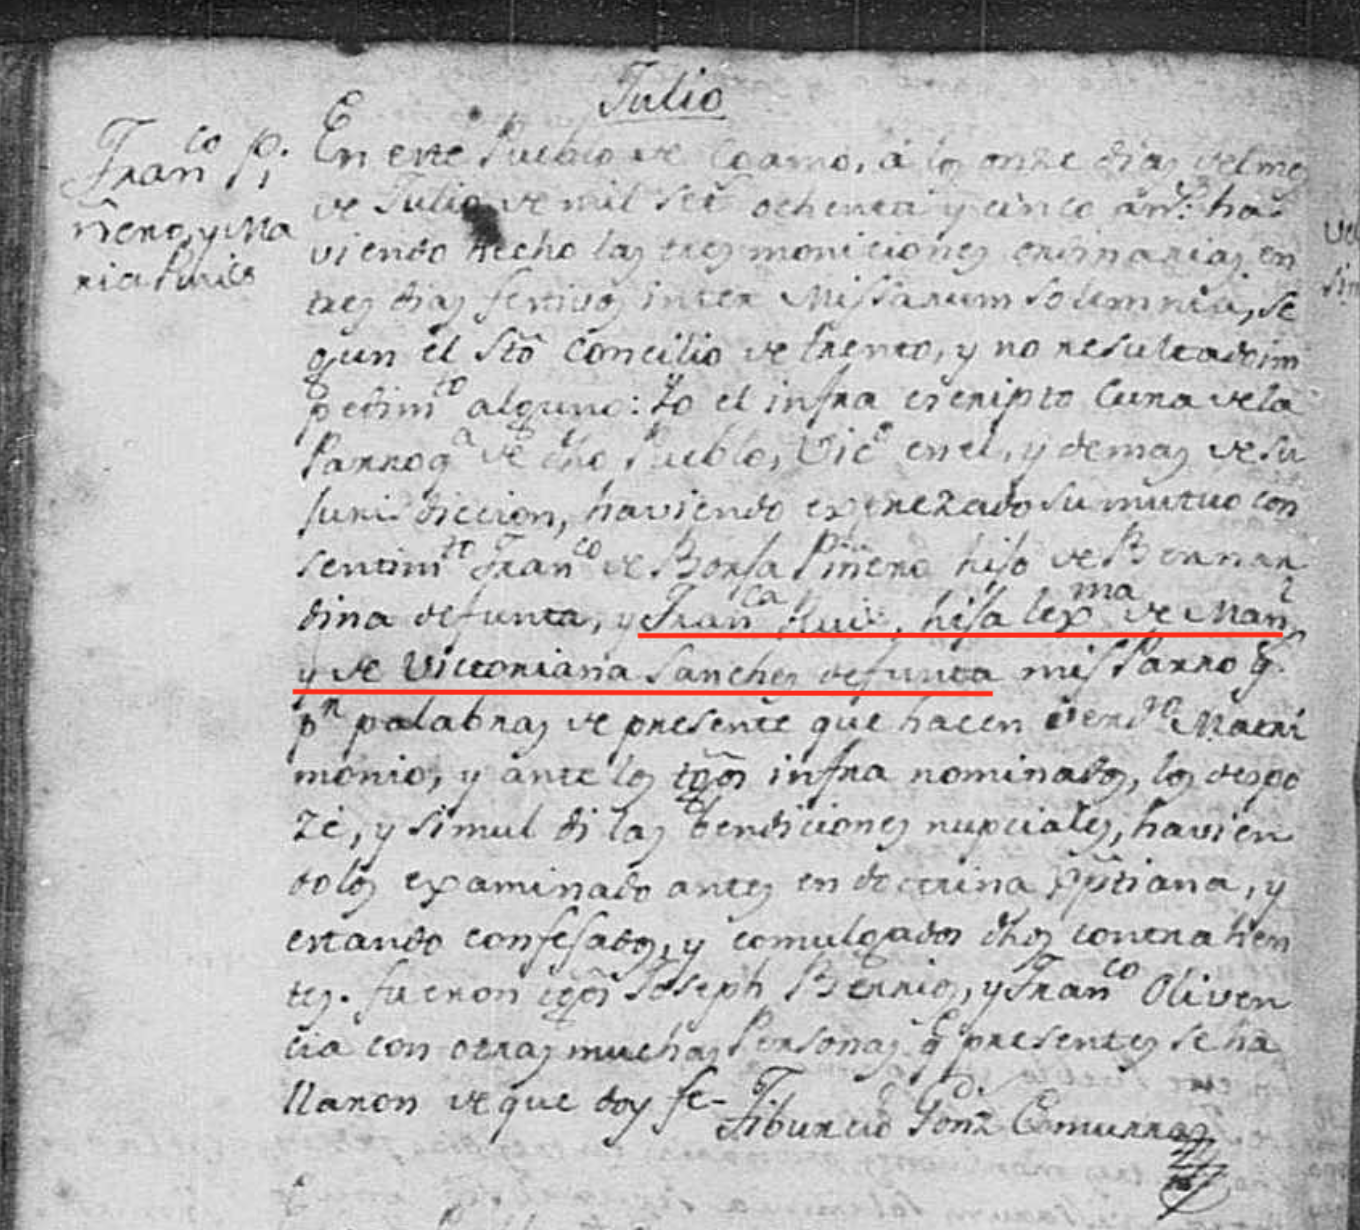 Julio
Fran^co Pi
ñero, y Ma
ria Ruis
En este Pueblo de Coamo, á los onze dias del mes
de Julio de mil set^s ochenta y cinco an^s: ha
viendo hecho las tres moniciones ordinarias en
tres dias festivos inter Missarum solemnia, se
gun el Stõ Concilio de trento, y no resultado im
pedim^to alguno: Yo el infra escripto Cura de la
Parroq^a de dho Pueblo, Vic^o en el, y demas de su
Jurisdiccion, haviendo exprezado su mutuo con
sentim^to Fran^co de Borja Piñero hijo de Bernar
dina defunta, y Fran^ca Ruis, hija lex^ma de Man^l
y de Victoriana Sanches defunta mis Parroq^s
p^r palabras de presente que hacen verd^ro Matri
monio, y ante los tgõs infra nominados, los despo
zé, y simul di las bendiciones nupciales, havien
dolos examinado antes en doctrina Xptiana, y
estando confesados, y comulgados dhos contrahen
tes. fueron tgõs Joseph Berrios, y Fran^co Oliven
cia con otras muchas Personas q^e presentes se ha
llaron de que doy fe-
Tiburcio Gonz